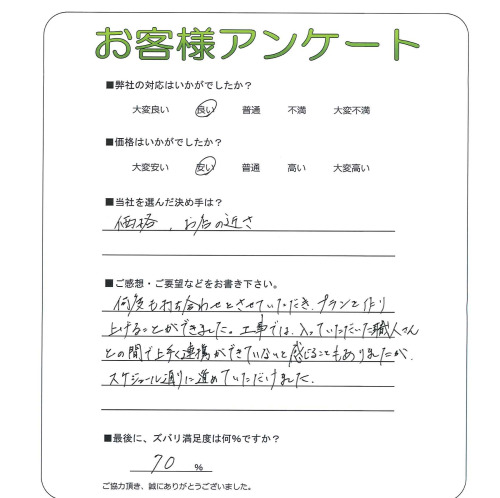 お客様アンケート
■弊社の対応はいかがでしたか？
大変良い 良い 普通 不満 大変不満
■価格はいかがでしたか？
大変安い 安い 普通 高い 大変高い
■当社を選んだ決め手は？
価格、お店の近さ
■ご感想・ご要望などをお書き下さい。
何度も打ち合わせをさせていただき、プランを作り
上げることができました。工事では、入っていただいた職人さん
との間で上手く連携ができていないと感じることもありましたが、
スケジュール通りに進めていただけました。
■最後に、ズバリ満足度は何%ですか？
70 %
ご協力頂き、誠にありがとうございました。